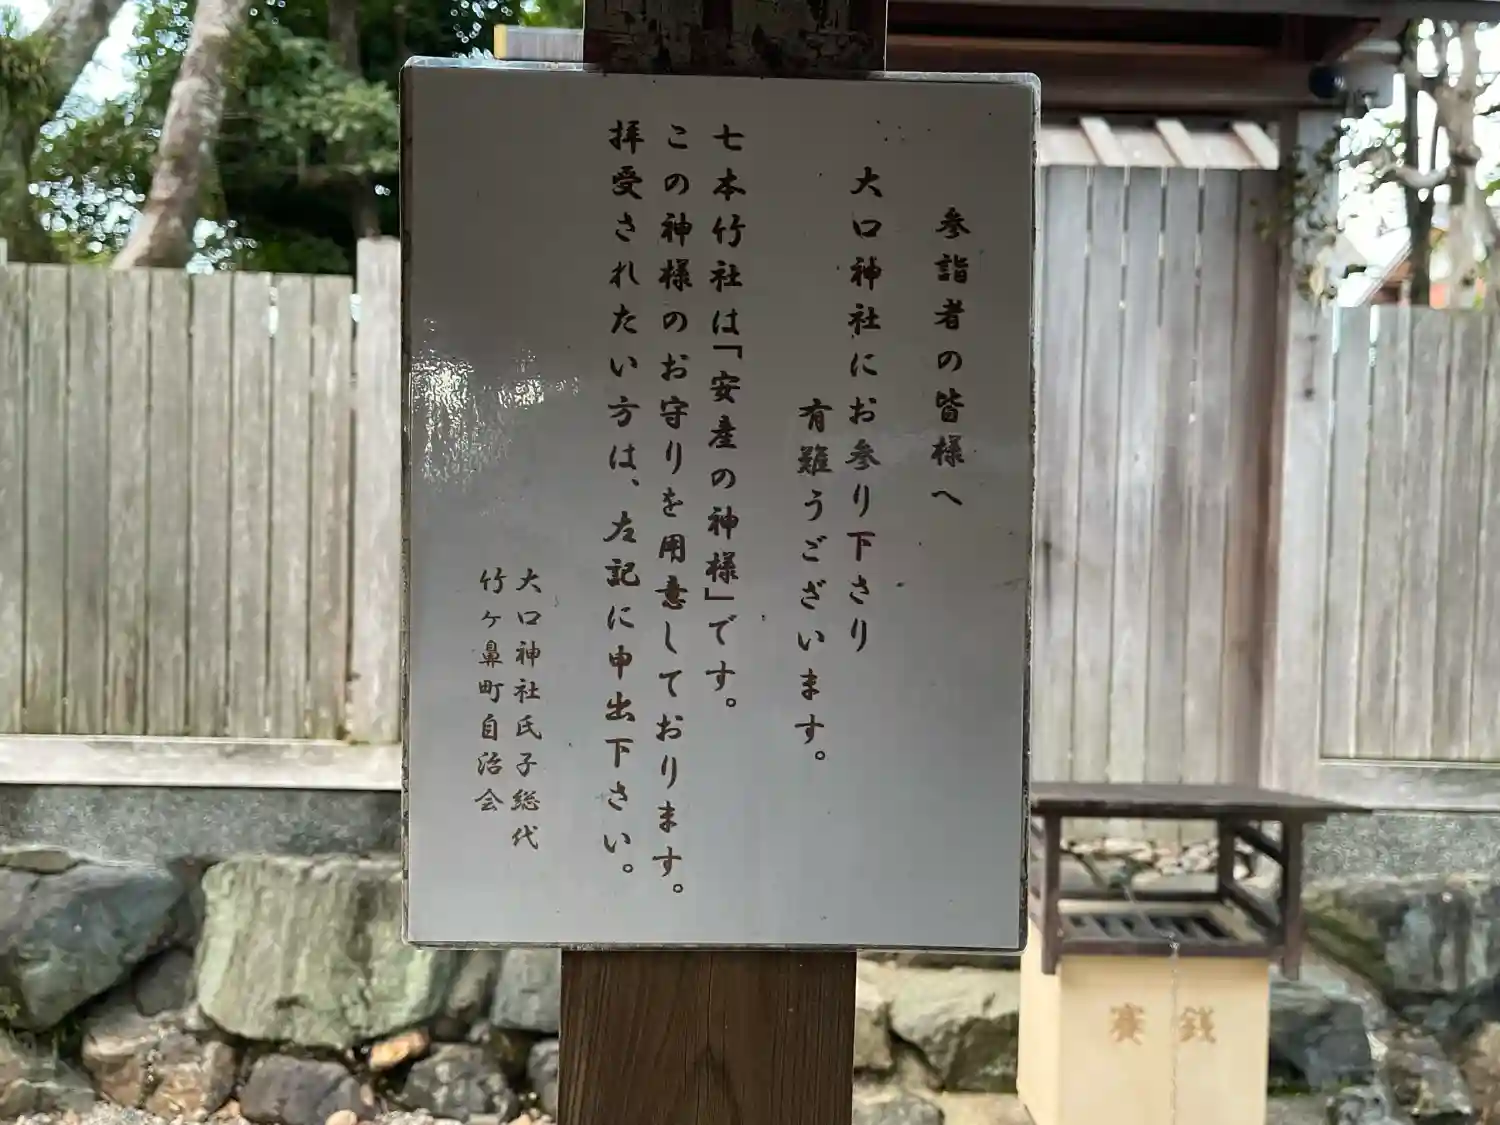 参詣者の皆様へ
大口神社にお参り下さり
有難うございます。
七本竹社は「安産の神様」です。
この神様のお守りを用意しております。
拝受されたい方は、左記に申出下さい。
大口神社氏子総代
竹ヶ鼻町自治会
賽銭